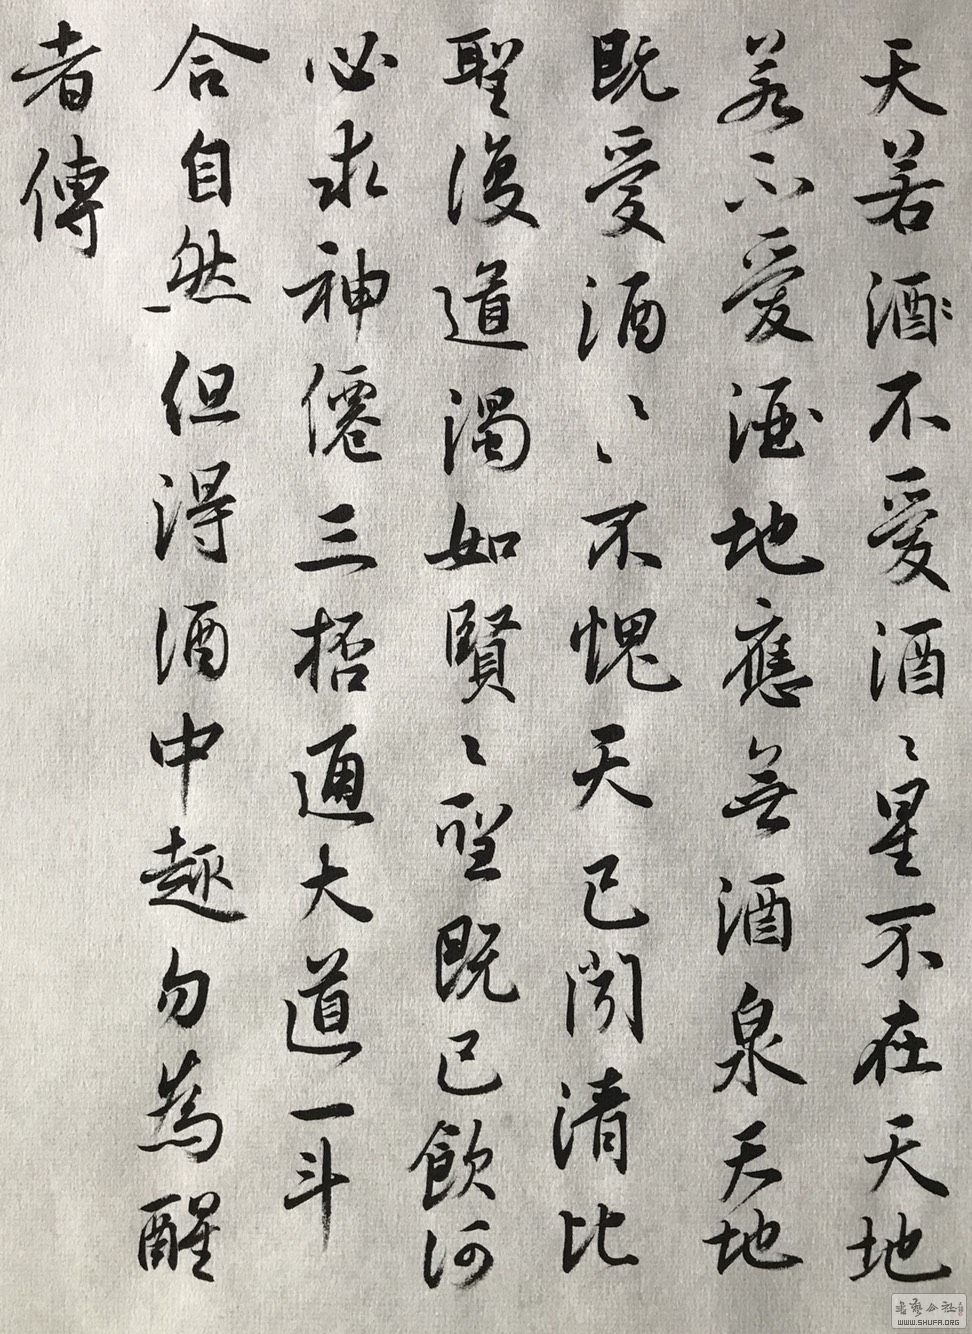 天若酒不愛酒〻星不在天地
若不愛酒地應無酒泉天地
既愛酒〻〻不愧天已聞清比
聖復道濁如賢〻聖既已飲河
必求神僊三杯通大道一斗
合自然但得酒中趣勿為醒
者傳
WWW.SHUFA.ORG